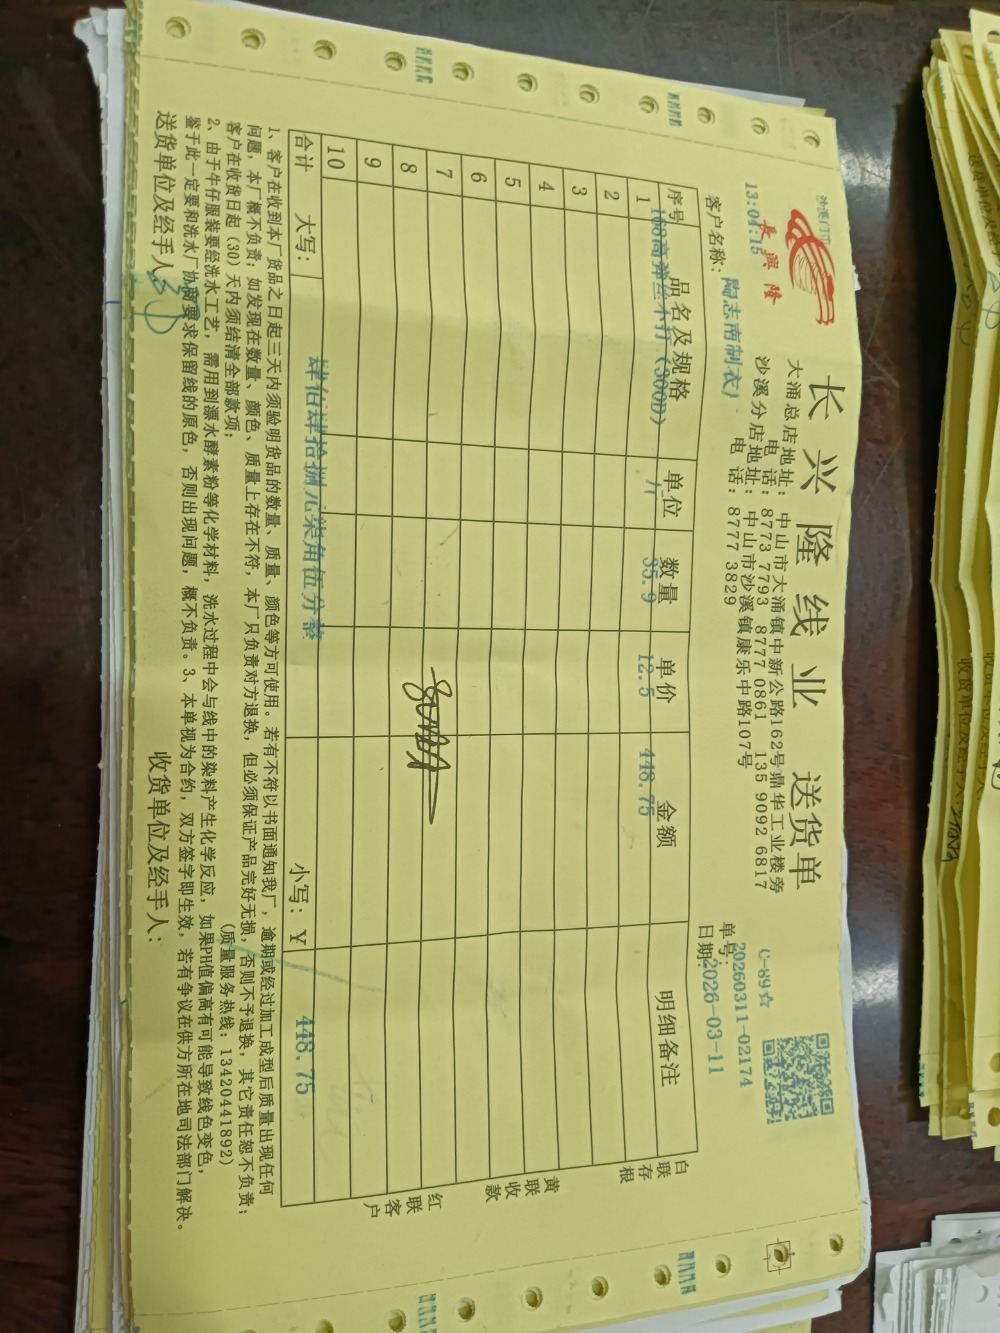 沙溪门市
長興隆
长兴隆线业 送货单
大涌总店地址：中山市大涌镇中新公路162号鼎华工业楼旁
电 话：8773 7793 8777 0861 135 9092 6817
沙溪分店地址：中山市沙溪镇康乐中路107号
电 话：8777 3829
C-89☆
13:04:15
单号：20260311-02174
客户名称：陶志南制衣厂
日期：2026-03-11
序号 品名及规格 单位 数量 单价 金额 明细备注
1 168高弹丝不打（300D） 斤 35.9 12.5 448.75
2
3
4
5
6
7
8
9
10
合计 大写：肆佰肆拾捌元柒角伍分整 小写：￥ 448.75
白联存根
黄联收款
红联客户
1、客户在收到本厂货品之日起三天内须验明货品的数量、质量、颜色等方可使用。若有不符以书面通知我厂，逾期或经过加工成型后质量出现任何
问题，本厂概不负责；如发现在数量、颜色、质量上存在不符，本厂只负责对方退换，但必须保证产品完好无损，否则不予退换，其它责任恕不负责；
客户在收货日起（30）天内须结清全部款项；
（质量服务热线：13420441892）
2、由于牛仔服装要经洗水工艺，需用到漂水酵素粉等化学材料，洗水过程中会与线中的染料产生化学反应，如果PH值偏高有可能导致线色变色，
鉴于此一定要和洗水厂协商要求保留线的原色，否则出现问题，概不负责。3、本单视为合约，双方签字即生效，若有争议在供方所在地司法部门解决。
送货单位及经手人： 收货单位及经手人：